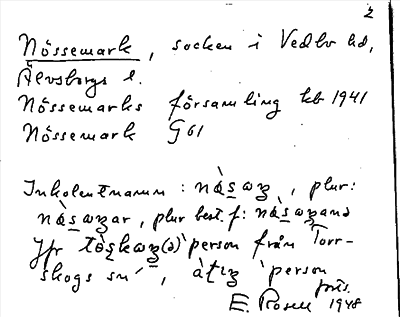 2
Nössemark, socken i Vedbo hd,
Älvsborgs l.
Nössemarks församling kb 1941
Nössemark G 61
Inkolentnamn : nàsωʒ, plur:
nàsωʒar, plur best. f: nàsωʒanə
Jfr tòskωʒ(ə) 'person från Torr-
skogs sn', àtɩʒ 'person
forts.
E. Rosell 1948